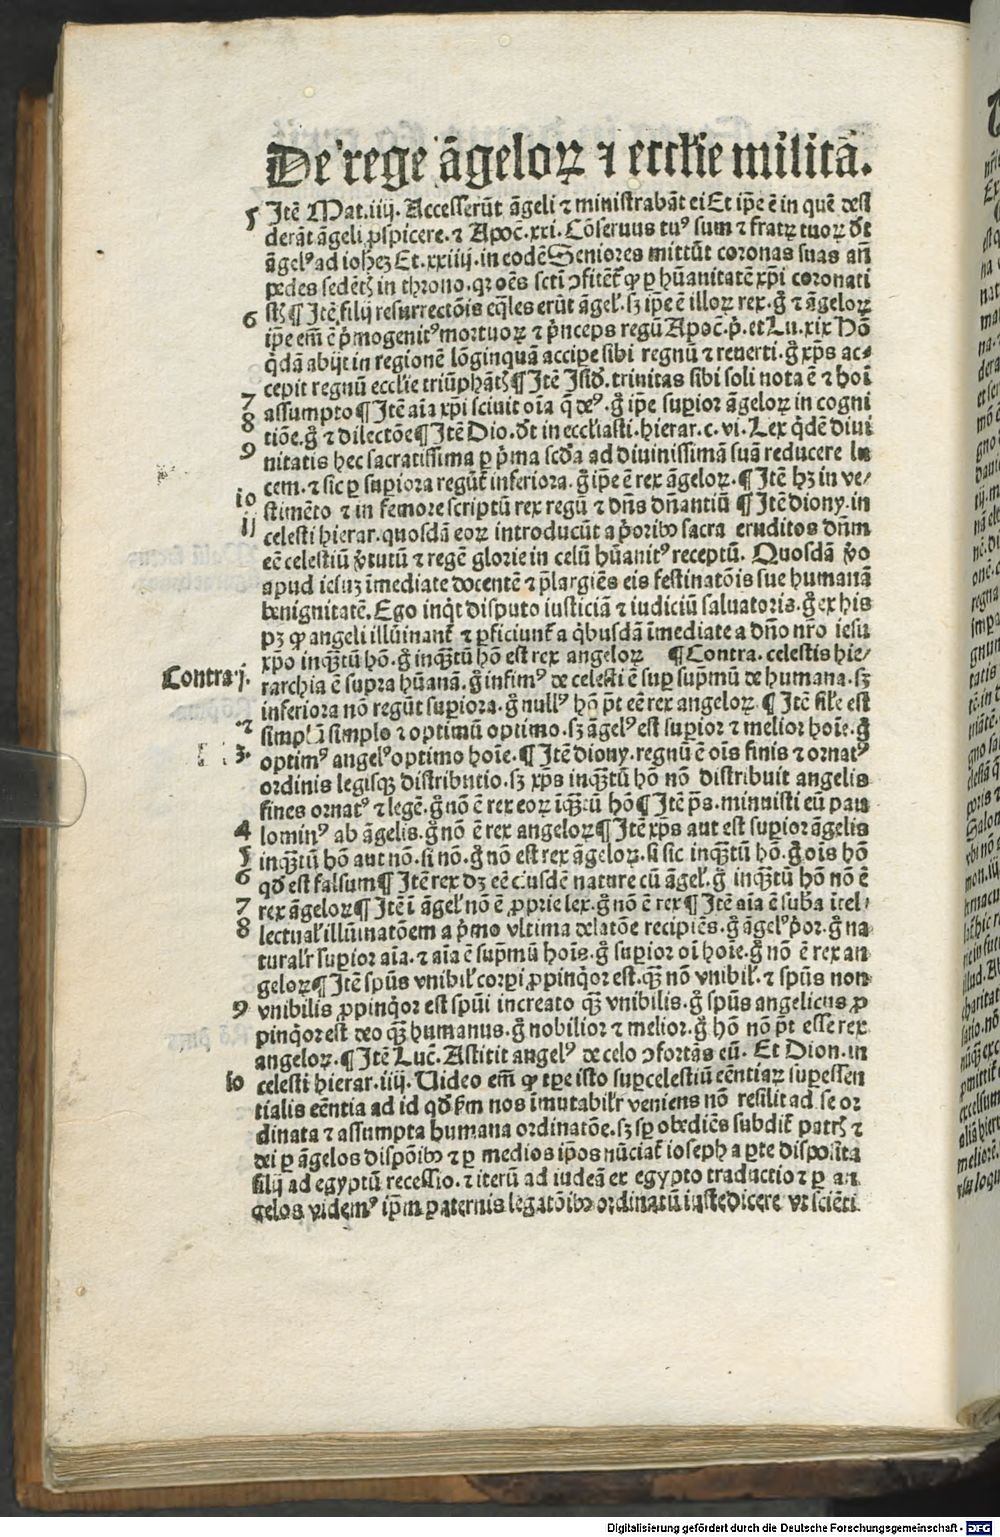 De rege āgeloꝝ ⁊ eccl'ie militā.
5 Itē Mat.iiij. Accesserūt āgeli ⁊ ministrabāt ei Et ip̄e ē in quē desi
derāt āgeli ꝓspicere. ⁊ Apoc̄.xxi. Cōseruus tuꝰ sum ⁊ fratꝝ tuoꝝ d̄t
āgelꝰ ad iohēꝫ Et.xxiiij. in eodē Seniores mittūt coronas suas an̄
pedes sedētꝭ in throno. qꝛ oēs scti ꝯfitēt͛ ꝙ ꝑ hūanitatē xp̄i coronati
6 st̄ꝭ ¶ Itē filij resurrectōis eq̄les erūt āgel'. sꝫ ip̄e ē illoꝝ rex. g̊ ⁊ āgeloꝝ
ip̄e em̄ ē p̄mogenitꝰ mortuoꝝ ⁊ p̄nceps regū Apoc̄.p̊. et Lu.xix Hō
q̇dā abijt in regionē lōginquā accipe sibi regnū ⁊ reuerti. g̊ xp̄s ac⸗
7 cepit regnū eccl'ie triūphātꝭ ¶ Itē Isid̄. trinitas sibi soli nota ē ⁊ hoī
8 assumpto ¶ Itē aīa xp̄i sciuit oīa q̄ deꝰ. g̊ ip̄e supior āgeloꝝ in cogni
9 tiōe. g̊ ⁊ dilectōe ¶ Itē Dio. d̄t in eccl'iasti. hierar. c. vi. Lex q̇dē diui
nitatis hec sacratissima ꝑ p̄ma scd̄a ad diuinissimā suā reducere lu
10 cem. ⁊ sic ꝑ supiora regūt͛ inferiora. g̊ ip̄e ē rex āgeloꝝ. ¶ Itē hꝫ in ve⸗
stimēto ⁊ in femore scriptū rex regū ⁊ dn̄s dn̄antiū ¶ Itē diony. in
11 celesti hierar. quosdā eoꝝ introducūt a p̊oribꝰ sacra eruditos dn̄m
eē celestiū v̊tutū ⁊ regē glorie in celū hūanitꝰ receptū. Quosdā v̊o
apud iesuꝫ īmediate docentē ⁊ p̄largiēs eis festinatōis sue humanā
benignitatē. Ego inq̇t disputo iusticiā ⁊ iudiciū saluatoris. g̊ ex his
pꝫ ꝙ angeli illūinant͛ ⁊ ꝑficiunt͛ a q̇busdā īmediate a dn̄o nr̄o iesu
xp̄o inqꝫtū hō. g̊ inqꝫtū hō est rex angeloꝝ ¶ Contra. celestis hie⸗
Contra.j. rarchia ē supra hūanā. g̊ infimꝰ de celesti ē suꝑ supmū de humana. sꝫ
inferiora nō regūt supiora. g̊ nullꝰ hō p̄t eē rex angeloꝝ. ¶ Itē sil'e est
2 simpl'r simple ⁊ optimū optimo. sꝫ āgelꝰ est supior ⁊ melior hoīe. g̊
3. optimꝰ angelꝰ optimo hoīe. ¶ Itē diony. regnū ē oīs finis ⁊ ornatꝰ
ordinis legisqꝫ distributio. sꝫ xp̄s inqꝫtū hō nō distribuit angelis
fines ornatꝰ ⁊ legē. g̊ nō ē rex eoꝝ īqꝫtū hō ¶ Itē p̄s. minuisti eū pau
4 lominꝰ ab āgelis. g̊ nō ē rex angeloꝝ ¶ Itē xp̄s aut est supior āgelis
5 inqꝫtū hō aut nō. si nō. g̊ nō est rex āgeloꝝ. si sic inqꝫtū hō. g̊ oīs hō
6 qd̄ est falsum ¶ Itē rex dꝫ eē eiusdē nature cū āgel'. g̊ inqꝫtū hō nō ē
7 rex āgeloꝝ ¶ Itē ī āgel' nō ē ꝓprie lex. g̊ nō ē rex ¶ Itē aīa ē suba ītel⸗
8 lectual' illūinatōem a p̄mo vltima relatōe recipiēs. g̊ āgelꝰ p̊or. g̊ na
tural'r supior aīa. ⁊ aīa ē supmū hoīs. g̊ supior oī hoīe. g̊ nō ē rex an
geloꝝ ¶ Itē spūs vnibil' corpi ꝓpinq̇or est. qꝫ nō vnibil'. ⁊ spūs non
9 vnibilis ꝓpinq̇or est spūi increato qꝫ vnibilis. g̊ spūs angelicus ꝓ
pinq̇or est deo qꝫ humanus. g̊ nobilior ⁊ melior. g̊ hō nō p̄t esse rex
angeloꝝ. ¶ Itē Luc̄. Astitit angelꝰ de celo ꝯfortās eū. Et Dion. in
10 celesti hierar. iiij. Video em̄ ꝙ tpe isto supcelestiū eēntiaꝝ supessen
tialis eēntia ad id qd̄ fm nos īmutabil'r veniens nō resilit ad se or
dinata ⁊ assumpta humana ordinatōe. sꝫ sp obediēs subdit͛ patrꝭ ⁊
dei ꝑ āgelos dispōibꝰ ⁊ ꝑ medios ip̄os nūciat͛ ioseph a pr̄e disposita
filij ad egyptū recessio. ⁊ iterū ad iudeā ex egypto traductio ⁊ ꝑ an
gelos videmꝰ ip̄m paternis legatōibꝰ ordinatū iuste dicere vt sciēti